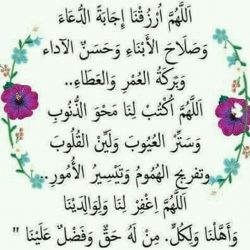 اَللَّهُمَّ اُرْزُقْنَا إِجَابَةَ الدُّعَاءَ
وَصَلَاحَ الْأَبْنَاءِ وَحَسَنَ الآداء
وَبَرَكَةُ العُمْرِ وَالعَطَاءِ..
اَللَّهُمَّ اُكْتُبْ لَنَا مَحْوَ الذُّنُوبِ
وَسَتْرَ العُيُوبَ وَلَيِّنَ الْقُلُوبَ
وتفريج الهُمُومُ وَتَيْسِيرُ الأُمُورِ..
اَللَّهُمَّ اِغْفِرْ لَنَا وَلِوَالِدَيْنَا
وَأَهْلَنَا وَلِكُلِّ. مِنْ لَهُ حَقٌّ وَفَضْلٌ عَلَيْنَا "